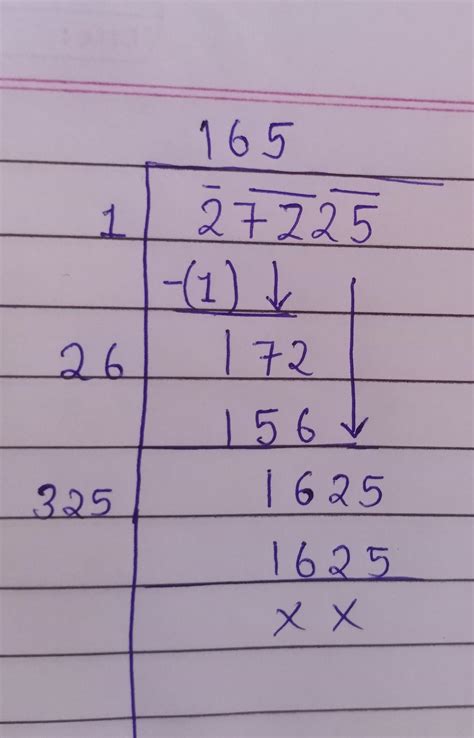 165
1 27225
-(1)
26 172
156
325 1625
1625
x x